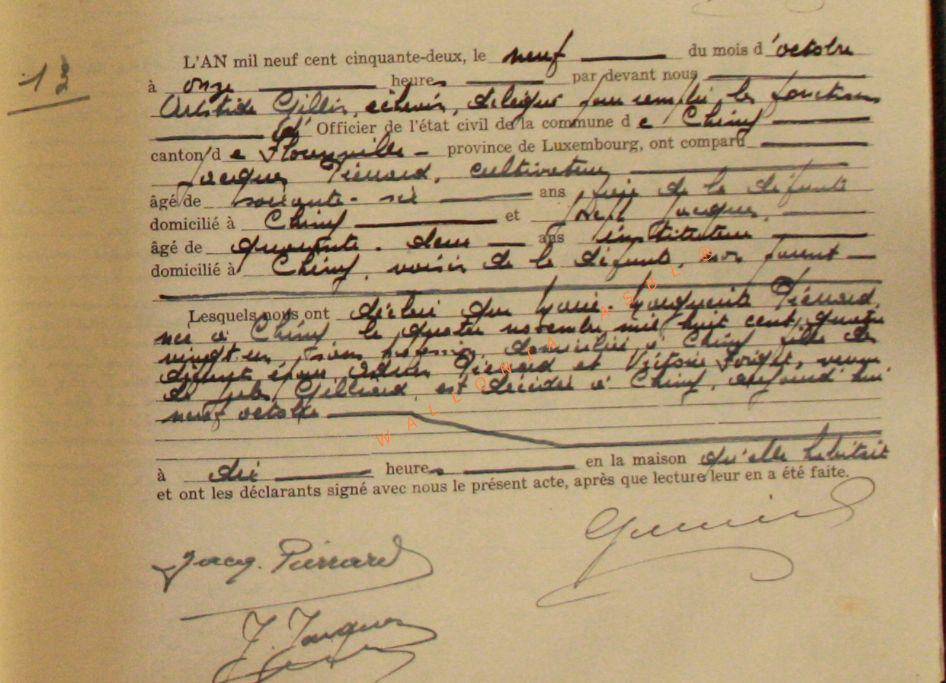 13
L'AN mil neuf cent cinquante-deux, le neuf du mois d'octobre
à onze heures par devant nous
Aristide Gillis, échevin, délégué pour remplir les fonctions
d' Officier de l'état civil de la commune de Chiny
canton de Florenville province de Luxembourg, ont comparu
Jacques Piérrard, cultivateur
âgé de soixante-six ans frère de la défunte
domicilié à Chiny et Jacques,
âgé de quarante-deux ans instituteur
domicilié à Chiny, voisin de la défunte, non parent
Lesquels nous ont déclaré que Marie-Marguerite Piérrard,
née à Chiny le quatre novembre mil huit cent quatre
vingt un, sans profession, domiciliée à Chiny fille des
défunts époux Piérrard et Victoire veuve
de Gilliard, est décédée à Chiny, aujourd'hui
neuf octobre
à dix heures en la maison qu'elle habitait
et ont les déclarants signé avec nous le présent acte, après que lecture leur en a été faite.
Jacq. Pierrard
J. Jacques
WALLONIA ASBL ©